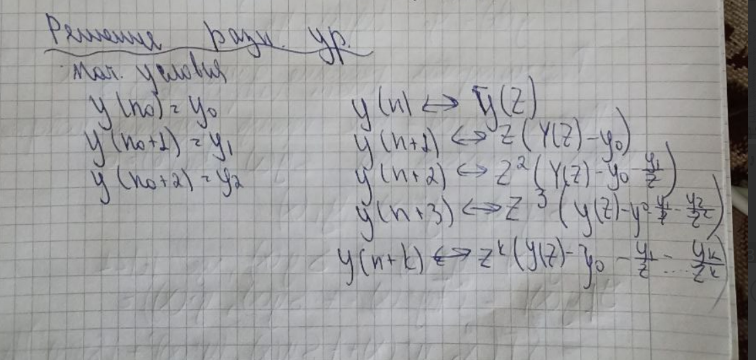 Решение разн. ур.
нач. условия
y(n0) = y0
y(n0+1) = y1
y(n0+2) = y2
y(n) ⇔ Y(Z)
y(n+1) ⇔ Z(Y(Z) - y0)
y(n+2) ⇔ Z²(Y(Z) - y0 - y1/Z)
y(n+3) ⇔ Z³(y(Z) - y0 - y1/Z - y2/Z²)
y(n+k) ⇔ Z^k(y(Z) - y0 - y1/Z - ... - yk/Z^k)